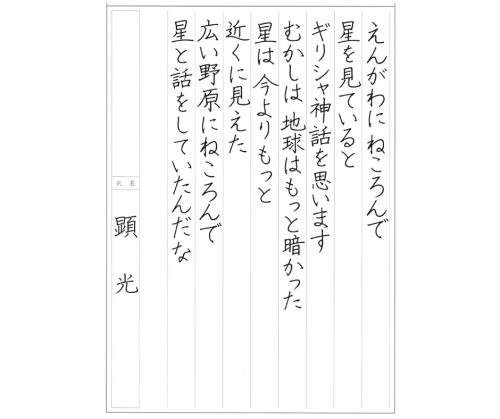 えんがわに ねころんで
星を見ていると
ギリシャ神話を思います
むかしは 地球はもっと暗かった
星は 今よりもっと
近くに見えた
広い野原にねころんで
星と話をしていたんだな
氏名
顕光